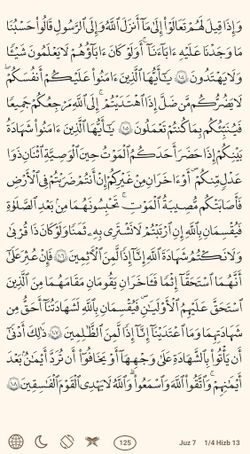 وَإِذَا قِيلَ لَهُمْ تَعَالَوْا۟ إِلَىٰ مَآ أَنزَلَ ٱللَّهُ وَإِلَى ٱلرَّسُولِ قَالُوا۟ حَسْبُنَا
مَا وَجَدْنَا عَلَيْهِ ءَابَآءَنَآ ۚ أَوَلَوْ كَانَ ءَابَآؤُهُمْ لَا يَعْلَمُونَ شَيْـًٔا
وَلَا يَهْتَدُونَ ١٠٤ يَـٰٓأَيُّهَا ٱلَّذِينَ ءَامَنُوا۟ عَلَيْكُمْ أَنفُسَكُمْ ۖ
لَا يَضُرُّكُم مَّن ضَلَّ إِذَا ٱهْتَدَيْتُمْ ۚ إِلَى ٱللَّهِ مَرْجِعُكُمْ جَمِيعًا
فَيُنَبِّئُكُم بِمَا كُنتُمْ تَعْمَلُونَ ١٠٥ يَـٰٓأَيُّهَا ٱلَّذِينَ ءَامَنُوا۟ شَهَـٰدَةُ
بَيْنِكُمْ إِذَا حَضَرَ أَحَدَكُمُ ٱلْمَوْتُ حِينَ ٱلْوَصِيَّةِ ٱثْنَانِ ذَوَا
عَدْلٍ مِّنكُمْ أَوْ ءَاخَرَانِ مِنْ غَيْرِكُمْ إِنْ أَنتُمْ ضَرَبْتُمْ فِى ٱلْأَرْضِ
فَأَصَـٰبَتْكُم مُّصِيبَةُ ٱلْمَوْتِ ۚ تَحْبِسُونَهُمَا مِنۢ بَعْدِ ٱلصَّلَوٰةِ
فَيُقْسِمَانِ بِٱللَّهِ إِنِ ٱرْتَبْتُمْ لَا نَشْتَرِى بِهِۦ ثَمَنًا وَلَوْ كَانَ ذَا قُرْبَىٰ ۙ
وَلَا نَكْتُمُ شَهَـٰدَةَ ٱللَّهِ إِنَّآ إِذًا لَّمِنَ ٱلْـَٔاثِمِينَ ١٠٦ فَإِنْ عُثِرَ عَلَىٰٓ
أَنَّهُمَا ٱسْتَحَقَّآ إِثْمًا فَـَٔاخَرَانِ يَقُومَانِ مَقَامَهُمَا مِنَ ٱلَّذِينَ
ٱسْتَحَقَّ عَلَيْهِمُ ٱلْأَوْلَيَـٰنِ فَيُقْسِمَانِ بِٱللَّهِ لَشَهَـٰدَتُنَآ أَحَقُّ مِن
شَهَـٰدَتِهِمَا وَمَا ٱعْتَدَيْنَآ إِنَّآ إِذًا لَّمِنَ ٱلظَّـٰلِمِينَ ١٠٧ ذَٰلِكَ أَدْنَىٰٓ
أَن يَأْتُوا۟ بِٱلشَّهَـٰدَةِ عَلَىٰ وَجْهِهَآ أَوْ يَخَافُوٓا۟ أَن تُرَدَّ أَيْمَـٰنٌۢ بَعْدَ
أَيْمَـٰنِهِمْ ۗ وَٱتَّقُوا۟ ٱللَّهَ وَٱسْمَعُوا۟ ۗ وَٱللَّهُ لَا يَهْدِى ٱلْقَوْمَ ٱلْفَـٰسِقِينَ ١٠٨
125 Juz 7 1/4 Hizb 13